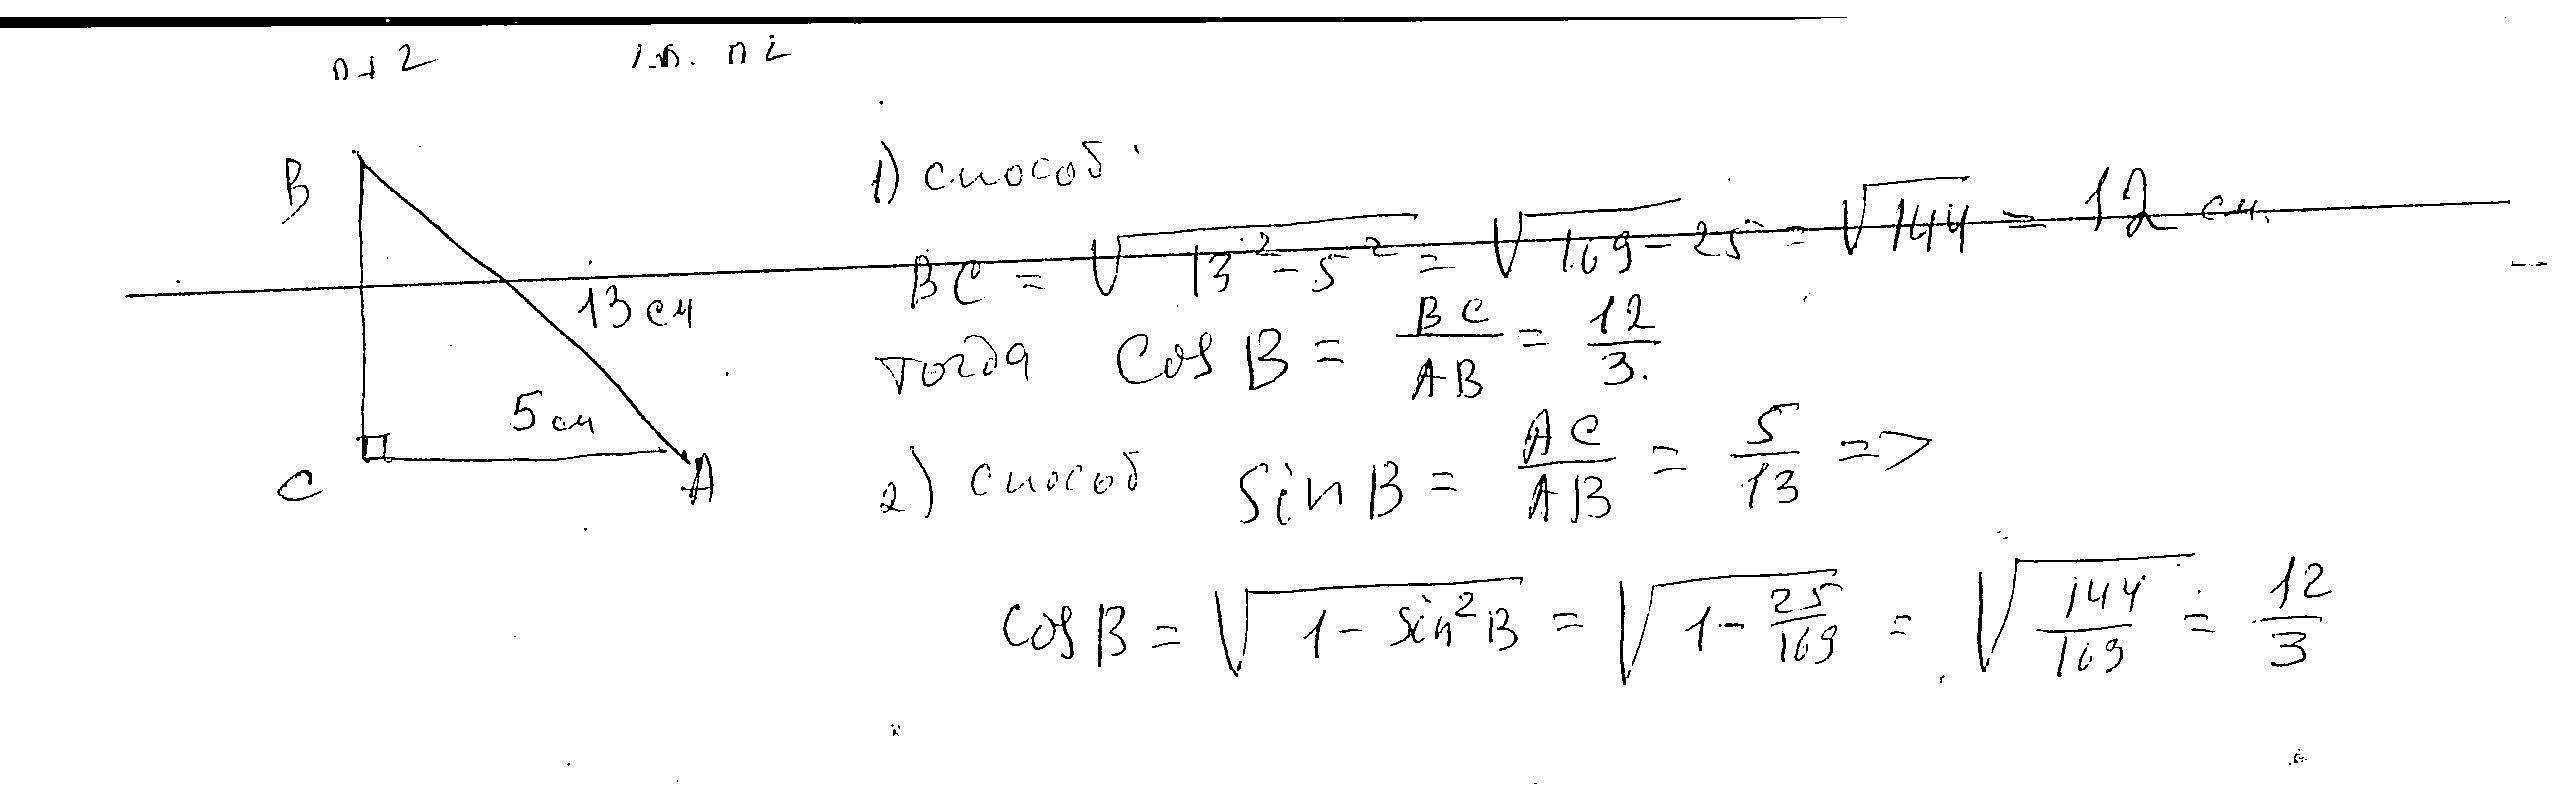 B
13 см
5 см
C
A
1) способ
BC = √(13² - 5²) = √(169 - 25) = √144 = 12 см.
тогда cos B = BC/AB = 12/3.
2) способ sin B = AC/AB = 5/13 =>
cos B = √(1 - sin²B) = √(1 - 25/169) = √(144/169) = 12/3